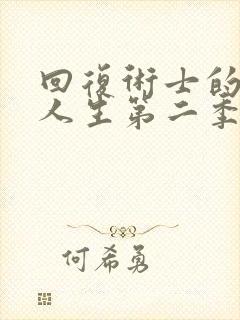 回復術士的
人生第二季
何希勇